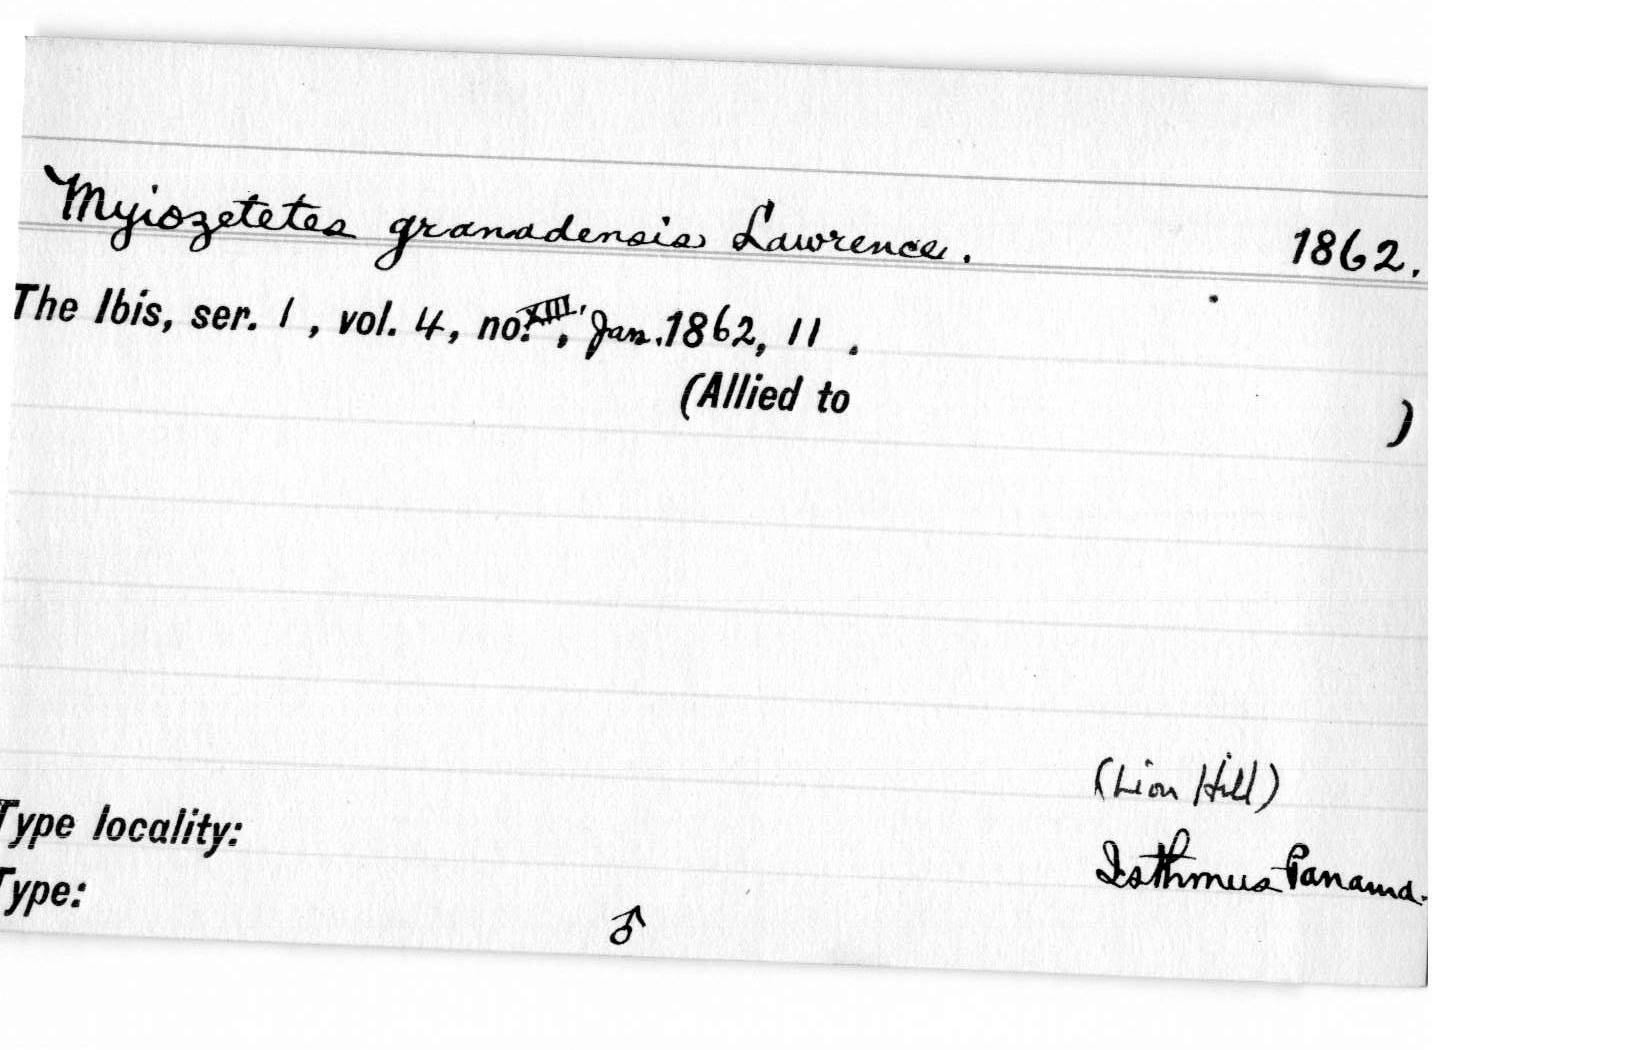 Myiozetetes granadensis Lawrence. 1862.
The Ibis, ser. 1, vol. 4, no. XIII, Jan. 1862, 11.
(Allied to )
(Lion Hill)
Type locality: Isthmus Panama.
Type: ♂